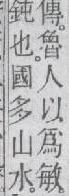 傳。魯人以爲敏
鈍也。國多山水。